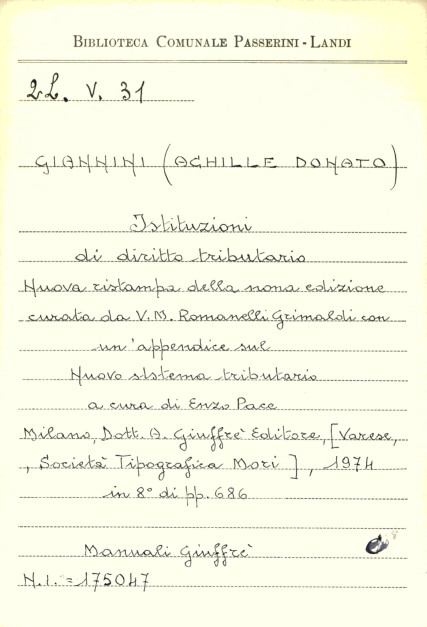 BIBLIOTECA COMUNALE PASSERINI - LANDI
2L. V. 31
GIANNINI (ACHILLE DONATO)
Istituzioni
di diritto tributario
Nuova ristampa della nona edizione
curata da V.M. Romanelli Grimaldi con
un'appendice sul
Nuovo sistema tributario
a cura di Enzo Pace
Milano, Dott. A. Giuffrè Editore, [Varese,
, Società Tipografica Mori], 1974
in 8° di pp. 686
Manuali Giuffrè
N.I. = 175047